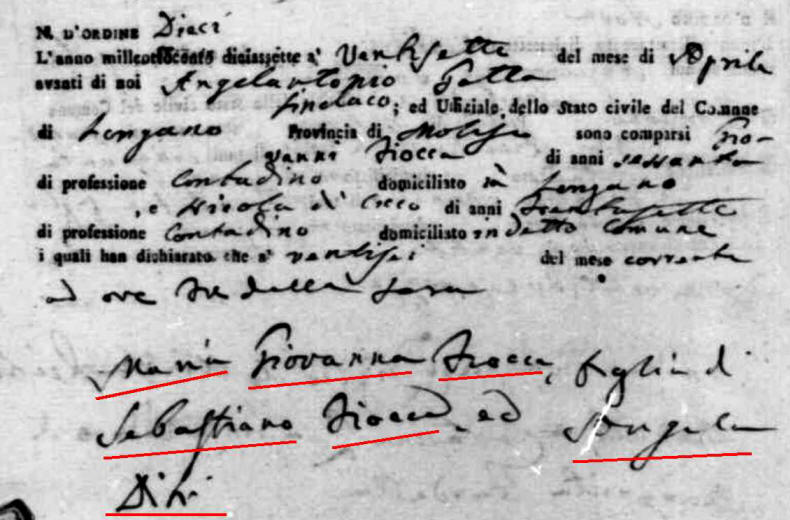 N. D'ORDINE Dieci
L'anno milleottocento diciassette a' Ventisette del mese di Aprile
avanti di noi Angelantonio
Sindaco; ed Uffiziale dello Stato civile del Comune
di Longano Provincia di Molise sono comparsi Gio-
vanni Fiocca di anni sessanta
di professione Contadino domiciliato in Longano
, e Nicola di anni
di professione Contadino domiciliato in detto Comune
i quali han dichiarato che a' ventisei del mese corrente
ad ore tre della sera
Maria Giovanna Fiocca, figlia di
Sebastiano Fiocca, ed Angela